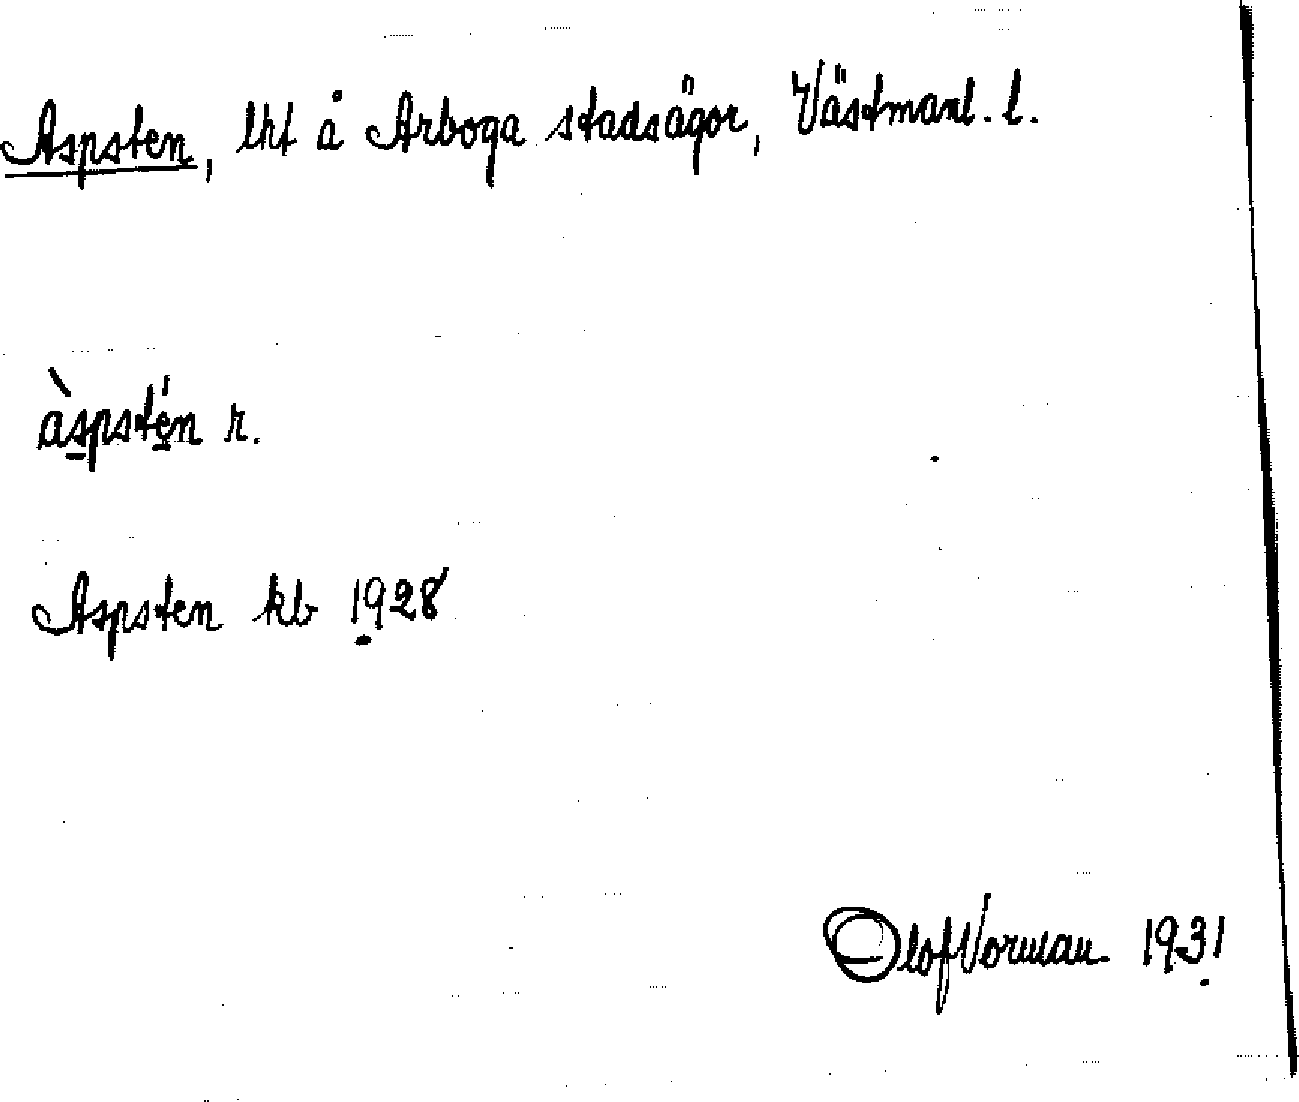 Aspsten, lht å Arboga stadsägor, Västmanl. l.
àspstén r.
Aspsten kb 1928
Olof Vorman 1931